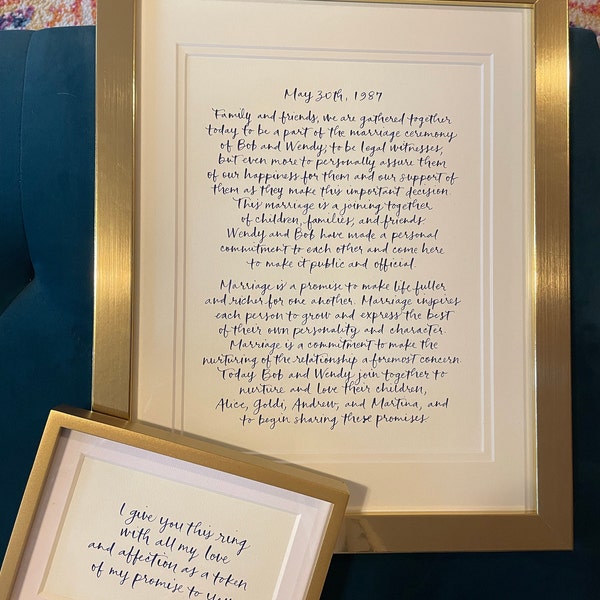 May 30th, 1987
Family and friends, we are gathered together
today to be a part of the marriage ceremony
of Bob and Wendy; to be legal witnesses,
but even more to personally assure them
of our happiness for them and our support of
them as they make this important decision.
This marriage is a joining together
of children, families, and friends
Wendy and Bob have made a personal
commitment to each other and come here
to make it public and official.
Marriage is a promise to make life fuller
and richer for one another. Marriage inspires
each person to grow and express the best
of their own personality and character.
Marriage is a commitment to make the
nurturing of the relationship a foremost concern.
Today Bob and Wendy join together to
nurture and love their children,
Alice, Goldi, Andrew, and Martina, and
to begin sharing these promises
I give you this ring
with all my love
and affection as a token
of my promise to you